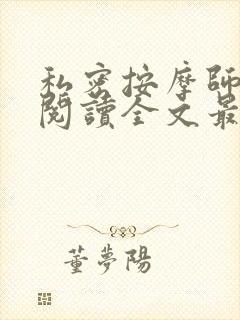 私密按摩師
閱讀全文最
董夢陽